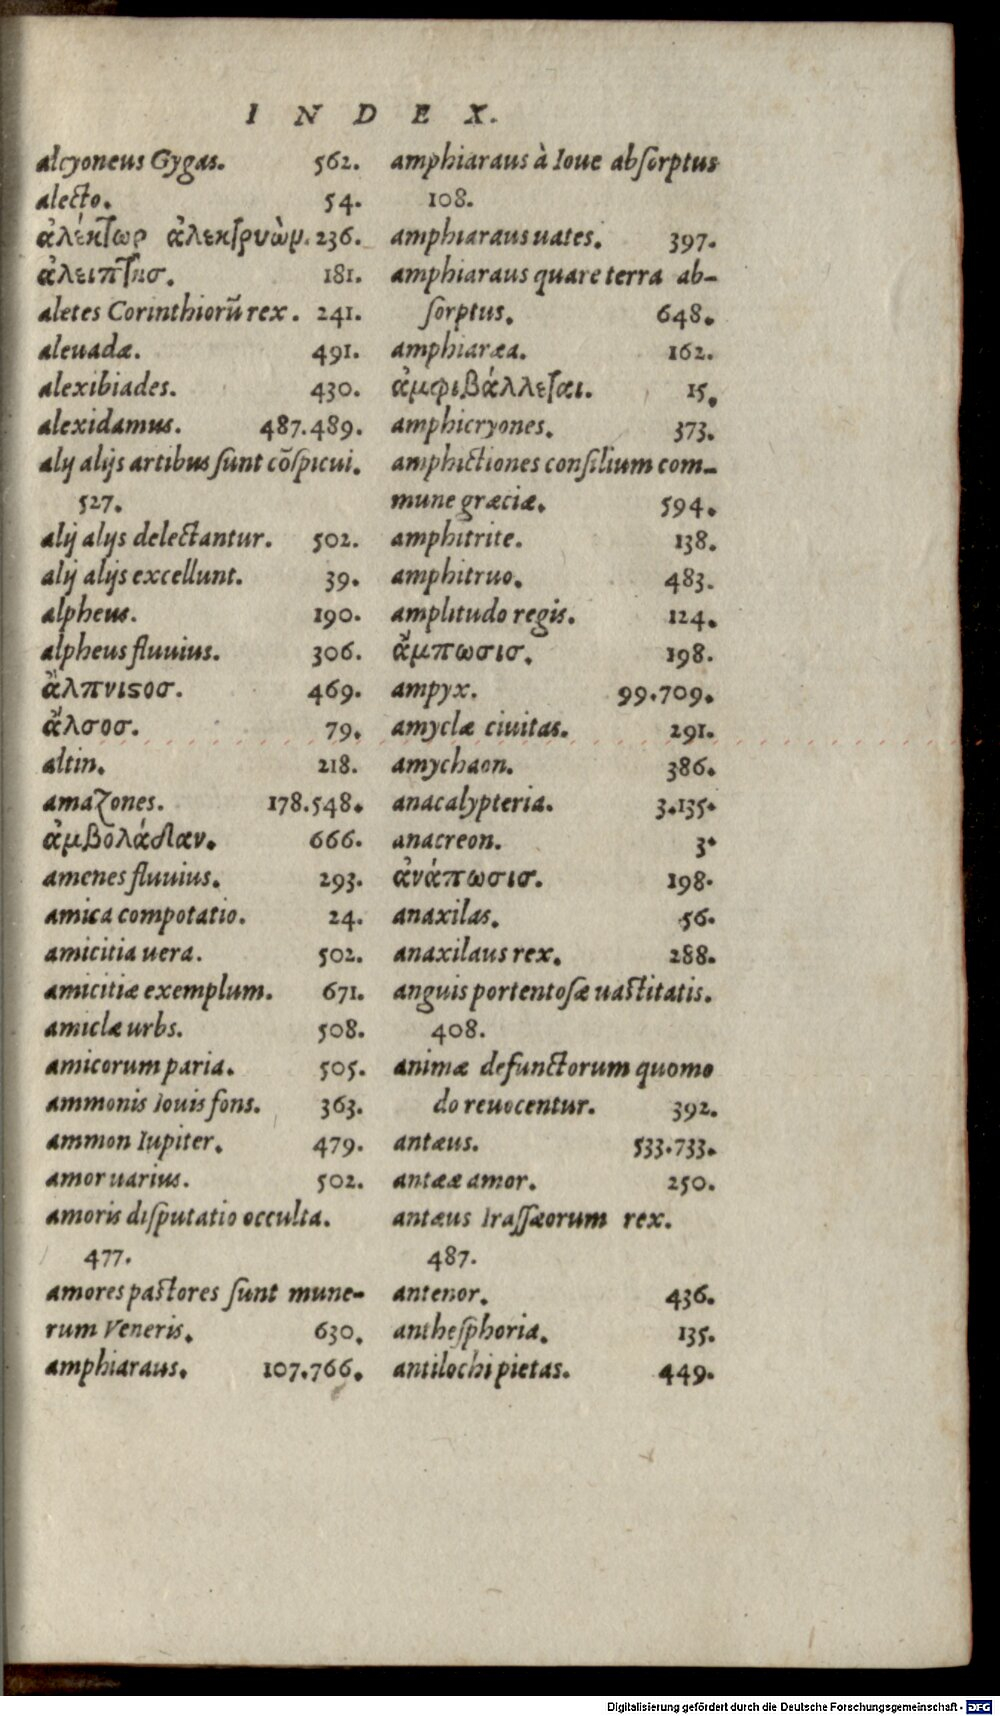 INDEX.
alcyoneus Gygas. 562.
alecto. 54.
ἀλέκτωρ ἀλεκτρυὼν. 236.
ἀλειπτησ. 181.
aletes Corinthiorũ rex. 241.
aleuadæ. 491.
alexibiades. 430.
alexidamus. 487.489.
alij alijs artibus ſunt cõſpicui.
527.
alij alijs delectantur. 502.
alij alijs excellunt. 39.
alpheus. 190.
alpheus fluuius. 306.
ἄλπνιϛοσ. 469.
ἄλσοσ. 79.
altin. 218.
amazones. 178.548.
ἀμβολάδαν. 666.
amenes fluuius. 293.
amica compotatio. 24.
amicitia uera. 502.
amicitiæ exemplum. 671.
amiclæ urbs. 508.
amicorum paria. 505.
ammonis Iouis fons. 363.
ammon Iupiter. 479.
amor uarius. 502.
amoris diſputatio occulta.
477.
amores paſtores ſunt mune-
rum Veneris. 630.
amphiaraus. 107.766.
amphiaraus à Ioue abſorptus
108.
amphiaraus uates. 397.
amphiaraus quare terra ab-
ſorptus. 648.
amphiaræa. 162.
ἀμφιβάλλεται. 15.
amphicryones. 373.
amphictiones conſilium com-
mune græciæ. 594.
amphitrite. 138.
amphitruo. 483.
amplitudo regis. 124.
ἄμπωσισ. 198.
ampyx. 99.709.
amyclæ ciuitas. 291.
amychaon. 386.
anacalypteria. 3.135.
anacreon. 3.
ἀνάπωσισ. 198.
anaxilas. 56.
anaxilaus rex. 288.
anguis portentoſæ uaſtitatis.
408.
animæ defunctorum quomo
do reuocentur. 392.
antæus. 533.733.
antææ amor. 250.
antæus Iraſſæorum rex.
487.
antenor. 436.
antheſphoria. 135.
antilochi pietas. 449.
Digitalisierung gefördert durch die Deutsche Forschungsgemeinschaft - DFG